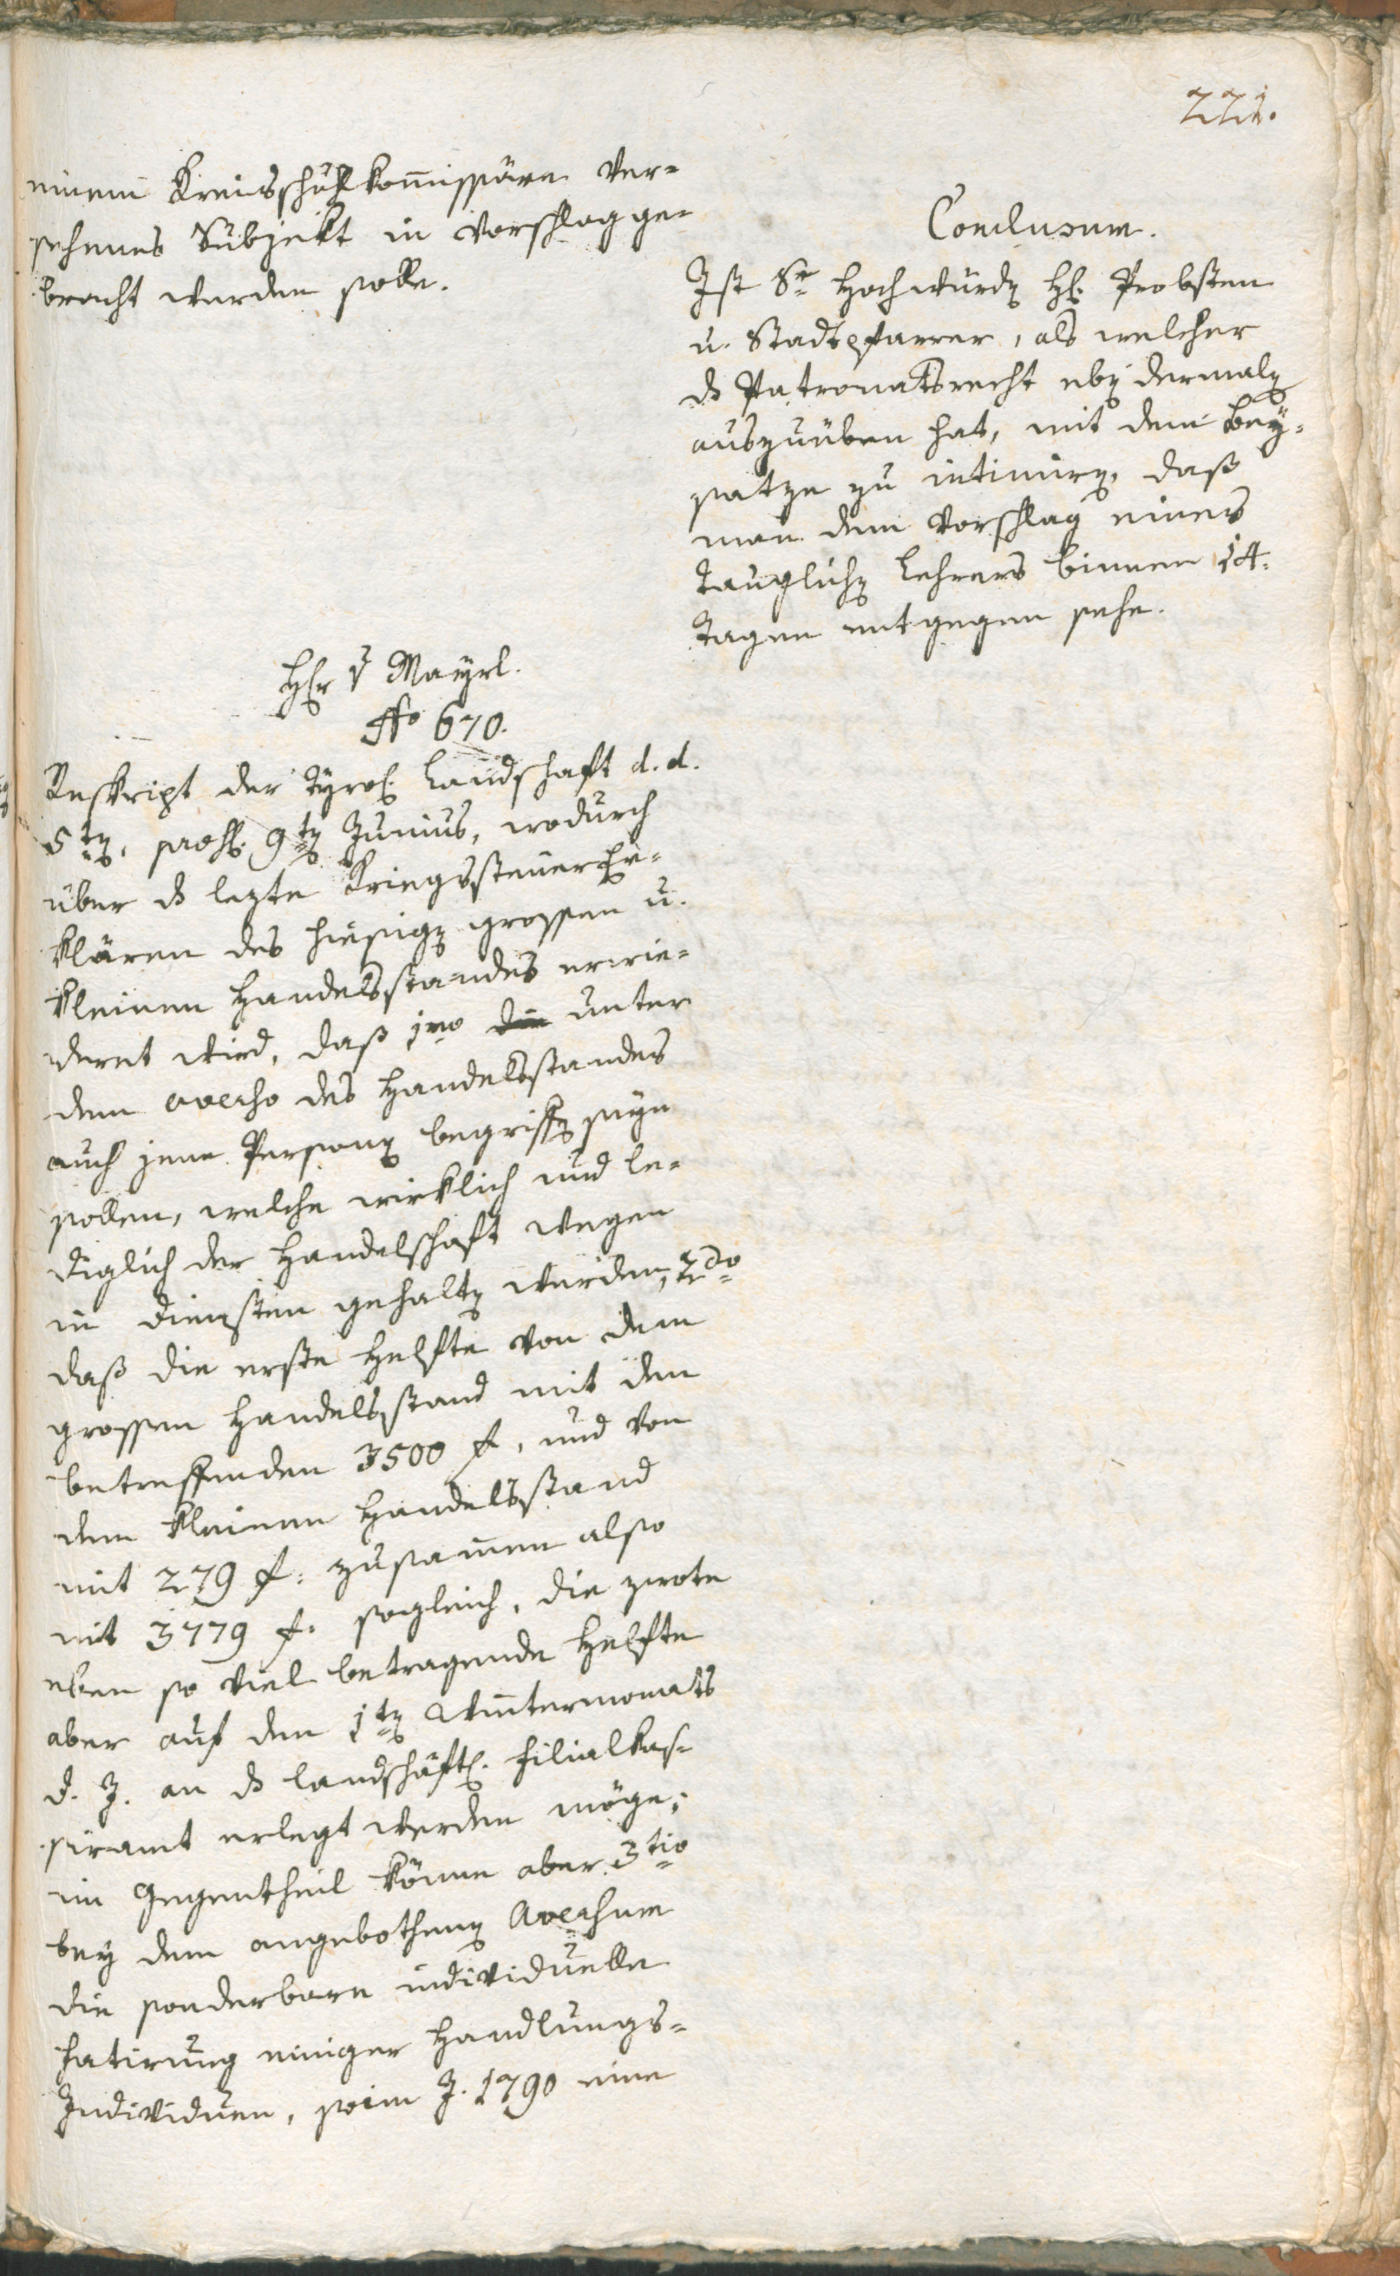 221.
einem Kreisschulkom̅issäre ver-
sehenes Subjekt in Vorschlag ge-
bracht werden solle.
Conclusum.
Ist Sr Hochwürdẽ H. Probsten
u. Stadtpfarrer, als welcher
ds Patronatsrecht ebẽ dermalẽ
auszuüben hat, mit dem Bey-
satze zu intimirẽ, daß
man dem Vorschlag eines
tauglichẽ Lehrers binnen 14.
Tagen entgegen sehe.
Hr v Mayrl.
No 670.
Reskript der Tyrol. Landschaft d. d.
5tẽ, praes. 9tẽ Junius, wodurch
über ds lezte Kriegssteuer Er-
klären des hiesigẽ grossen u.
kleinen Handelsstandes erwie-
dert wird, daß 1mo die unter
dem averso des Handelsstandes
auch jene Personẽ begriffẽ seyn
sollen, welche wirklich und le-
diglich der Handelschaft wegen
in Diensten gehaltẽ werden, 2do
daß die erste Helfte von dem
grossen Handelsstand mit den
betreffenden 3500 f, und von
dem kleinen Handelsstand
mit 279 f: zusam̅en also
mit 3779 f. sogleich, die zwote
eben so viel betragende Helfte
aber auf den 1tẽ Wintermonats
d. J. an ds landschäftl. Filialkas-
siramt erlegt werden möge;
im Gegentheil könne aber 3tio
bey dem angebothenẽ Aversum
die sonderbare individuelle
Fatirung einiger Handlungs-
Individuen, so im J. 1790 eine